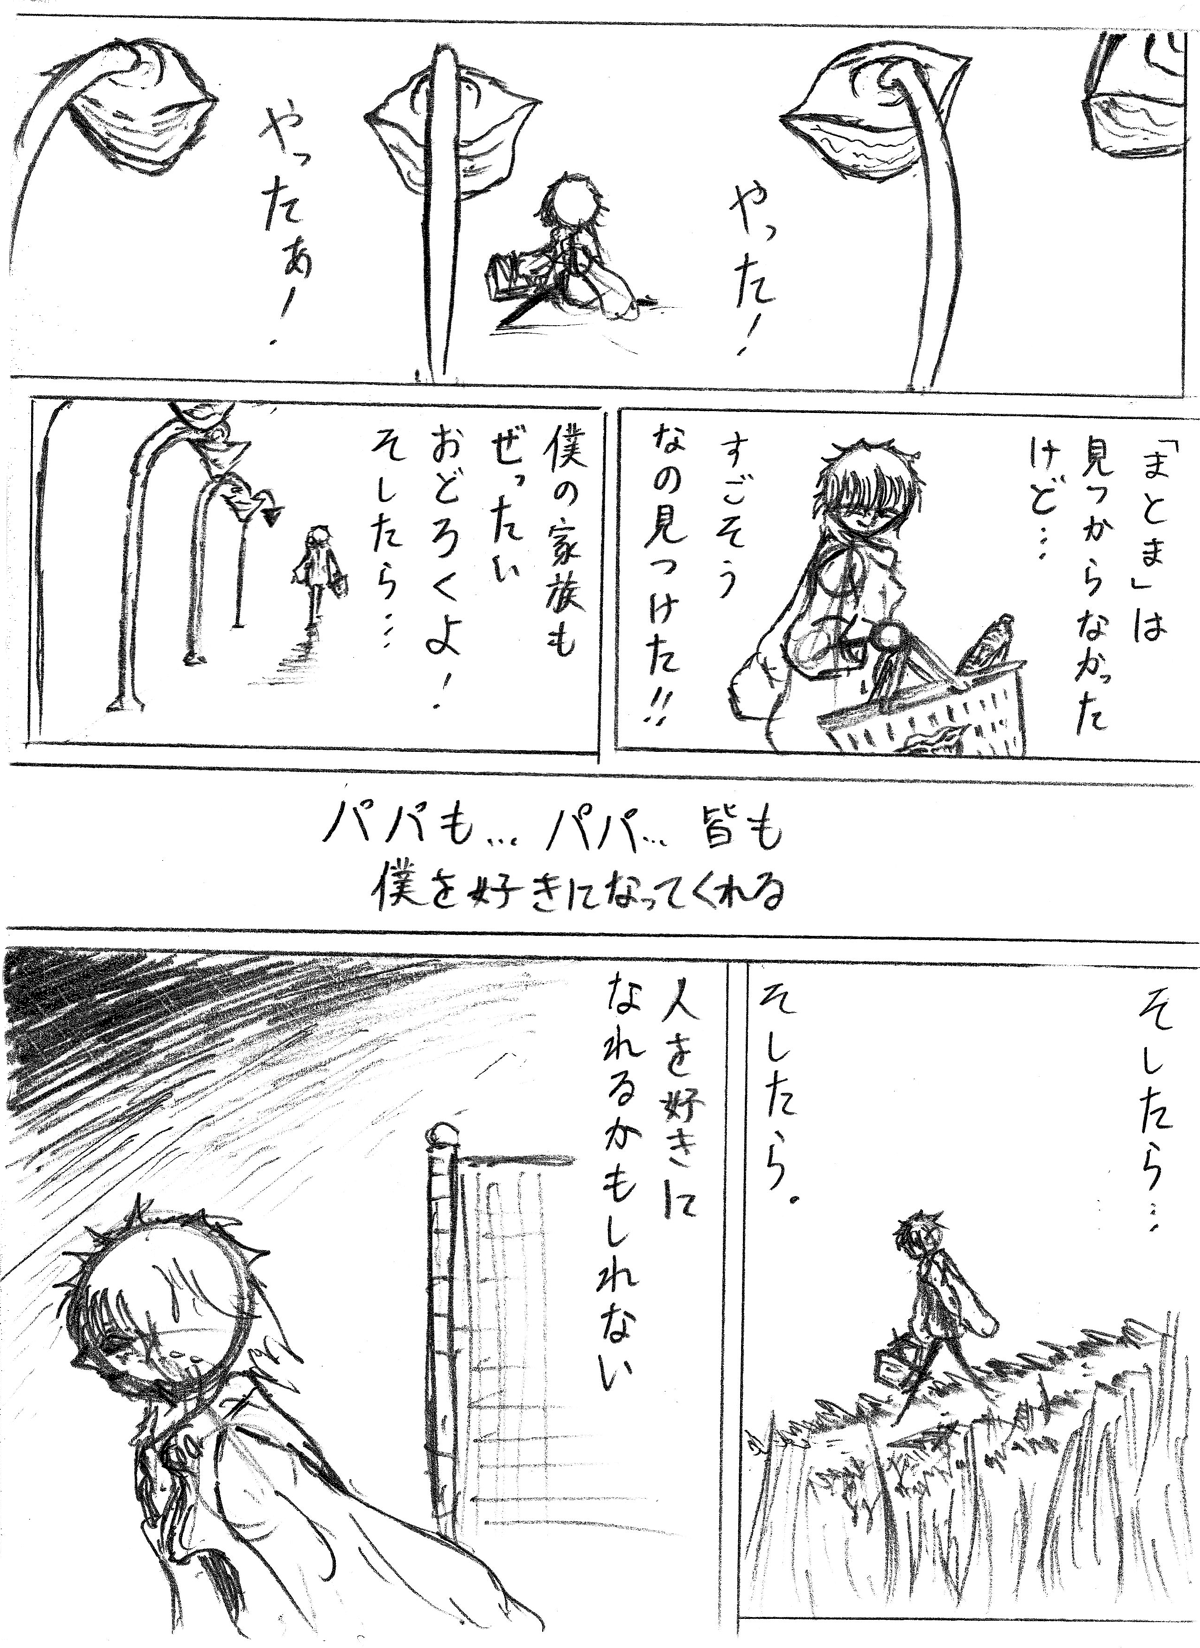 やった!
やったぁ!
「まとま」は
見つからなかった
けど…
すごそう
なの見つけた!!
僕の家族も
ぜったい
おどろくよ!
そしたら…
パパも…パパ…皆も
僕を好きになってくれる
そしたら…
そしたら.
人を好きに
なれるかもしれない